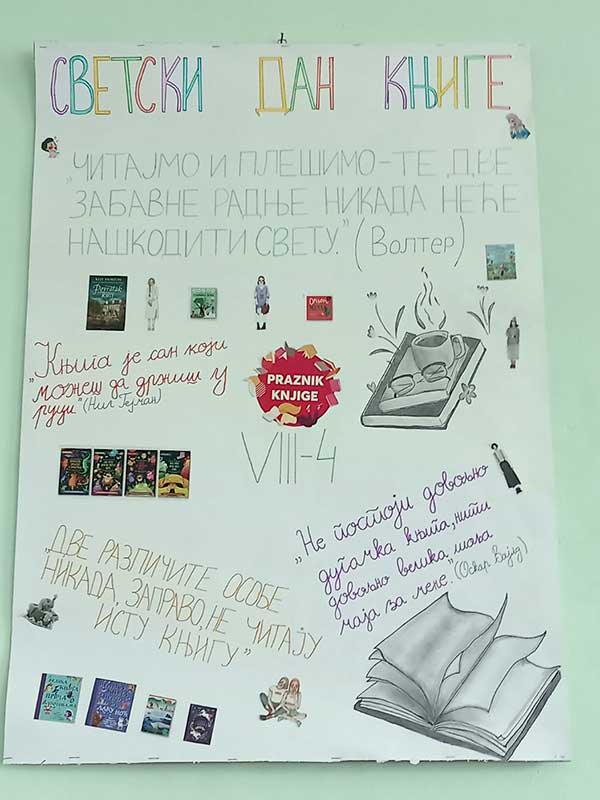 СВЕТСКИ ДАН КЊИГЕ
„ЧИТАЈМО И ПЛЕШИМО-ТЕ ДВЕ
ЗАБАВНЕ РАДЊЕ НИКАДА НЕЋЕ
НАШКОДИТИ СВЕТУ." (Волтер)
„Књига је сан који
можеш да држиш у
руци" (Нил Гејман)
PRAZNIK
KNJIGE
VIII-4
„Не постоји довољно
дугачка књига, нити
довољно велика шоља
чаја за мене." (Оскар Вајлд)
„ДВЕ РАЗЛИЧИТЕ ОСОБЕ
НИКАДА, ЗАПРАВО, НЕ ЧИТАЈУ
ИСТУ КЊИГУ"